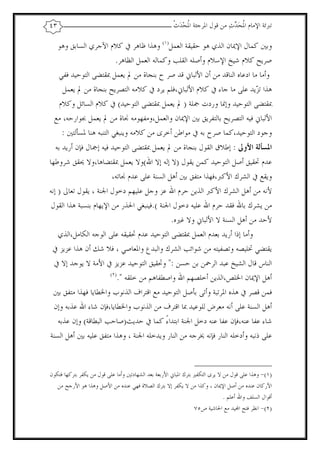 تبرئة الإمام المُحَدِّث من قول المرجئة المُحْدَث ٤٣
وبين كمال الإيمان الذي هو حقيقة العمل(١) وهذا ظاهر في كلام الآجري السابق وهو
صريح كلام شيخ الإسلام وأصله القلب وكماله العمل الظاهر.
وأما ما ادعاه الناقد من أن الألباني قد صرح بنجاة من لم يعمل بمقتضى التوحيد ففي
هذا تزيّد على ما جاء في كلام الألباني،فلم يرد في كلامه التصريح بنجاة من لم يعمل
بمقتضى التوحيد وإنما وردت جملة ( لم يعمل بمقتضى التوحيد) في كلام السائل وكلام
الألباني فيه التصريح بالتفريق بين الإيمان والعمل،ومفهومه نجاة من لم يعمل بجوارحه، مع
وجود التوحيد،كما صرح به في مواطن أخرى من كلامه وينبغي التنبه هنا لمسألتين :
المسألة الأولى : إطلاق القول بنجاة من لم يعمل بمقتضى التوحيد فيه إجمال فإن أريد به
عدم تحقيق أصل التوحيد كمن يقول (لا إله إلا الله)ولا يعمل بمقتضاها،ولا يحقق شروطها
ويقع في الشرك الأكبر،فهذا متفق بين أهل السنة على عدم نجاته،
لأنه من أهل الشرك الأكبر الذين حرم الله عز وجل عليهم دخول الجنة ، يقول تعالى ( إنه
من يشرك بالله فقد حرم الله عليه دخول الجنة ).فينبغي الحذر من الإيهام بنسبة هذا القول
لأحد من أهل السنة لا الألباني ولا غيره.
وأما إذا أريد بعدم العمل بمقتضى التوحيد عدم تحقيقه على الوجه الكامل،الذي
يقتضي تخليصه وتصفيته من شوائب الشرك والبدع والمعاصي ، فلا شك أن هذا عزيز في
الناس قال الشيخ عبد الرحمن بن حسن :" وتحقيق التوحيد عزيز في الأمة لا يوجد إلا في
أهل الإيمان الخلص،الذين أخلصهم الله واصطفاهم من خلقه ."(٢)
فمن قصر في هذه المرتبة وأتى بأصل التوحيد مع اقتراف الذنوب والخطايا فهذا متفق بين
أهل السنة على أنه معرض للوعيد بما اقترف من الذنوب والخطايا،فإن شاء الله عذبه وإن
شاء عفا عنه،فإن عفا عنه دخل الجنة ابتداء كما في حديث(صاحب البطاقة) وإن عذبه
على ذنبه وأدخله النار فإنه يخرجه من النار ويدخله الجنة ، وهذا متفق عليه بين أهل السنة
(١)- وهذا على قول من لا يرى التكفير بترك المباني الأربعة بعد الشهادتين وأما على قول من يكفر بتركها فتكون
الأركان عنده من أصل الإيمان ، وكذا من لا يكفر إلا بترك الصلاة فهي عنده من الأصل وهذا هو الأرجح من
أقوال السلف والله أعلم .
(٢)- انظر فتح المجيد مع الحاشية ص٧٥